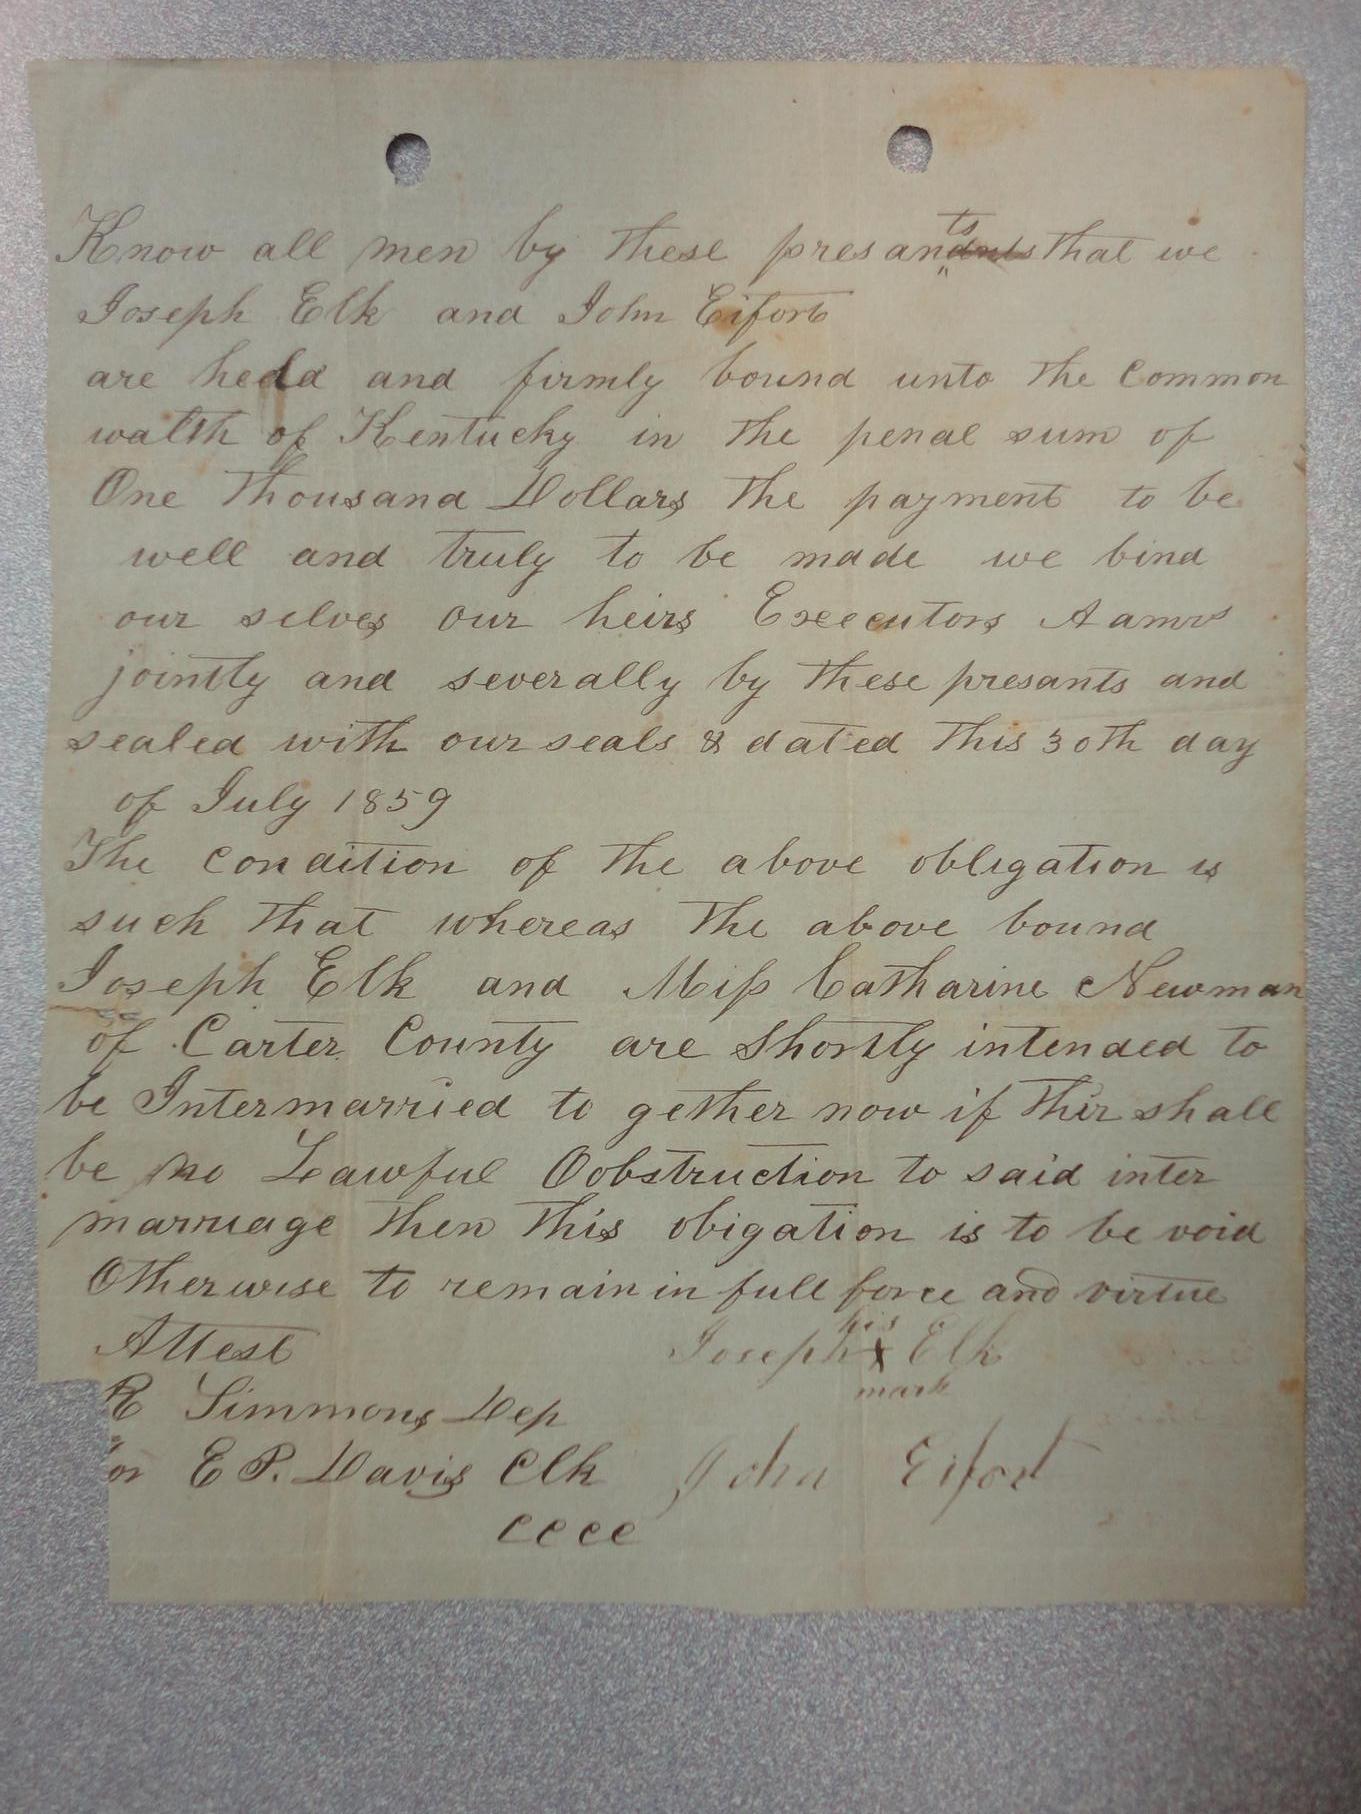 Know all men by these presants that we
Joseph Elk and John Eifort
are hedd and firmly bound unto the Common
walth of Kentucky in the penal sum of
One Thousand Dollars the payment to be
well and truly to be made we bind
our selves our heirs Executors Admrs
jointly and severally by these presants and
sealed with our seals & dated this 30th day
of July 1859
The condition of the above obligation is
such that whereas the above bound
Joseph Elk and Miss Catharine Newman
of Carter County are shortly intended to
be Intermarried to gether now if thir shall
be no Lawful Oobstruction to said inter
marriage then this obigation is to be void
Otherwise to remain in full force and virtue
Attest Joseph his X mark Elk
R Simmons Dep
for E P. Davis Clk John Eifort
CCCC